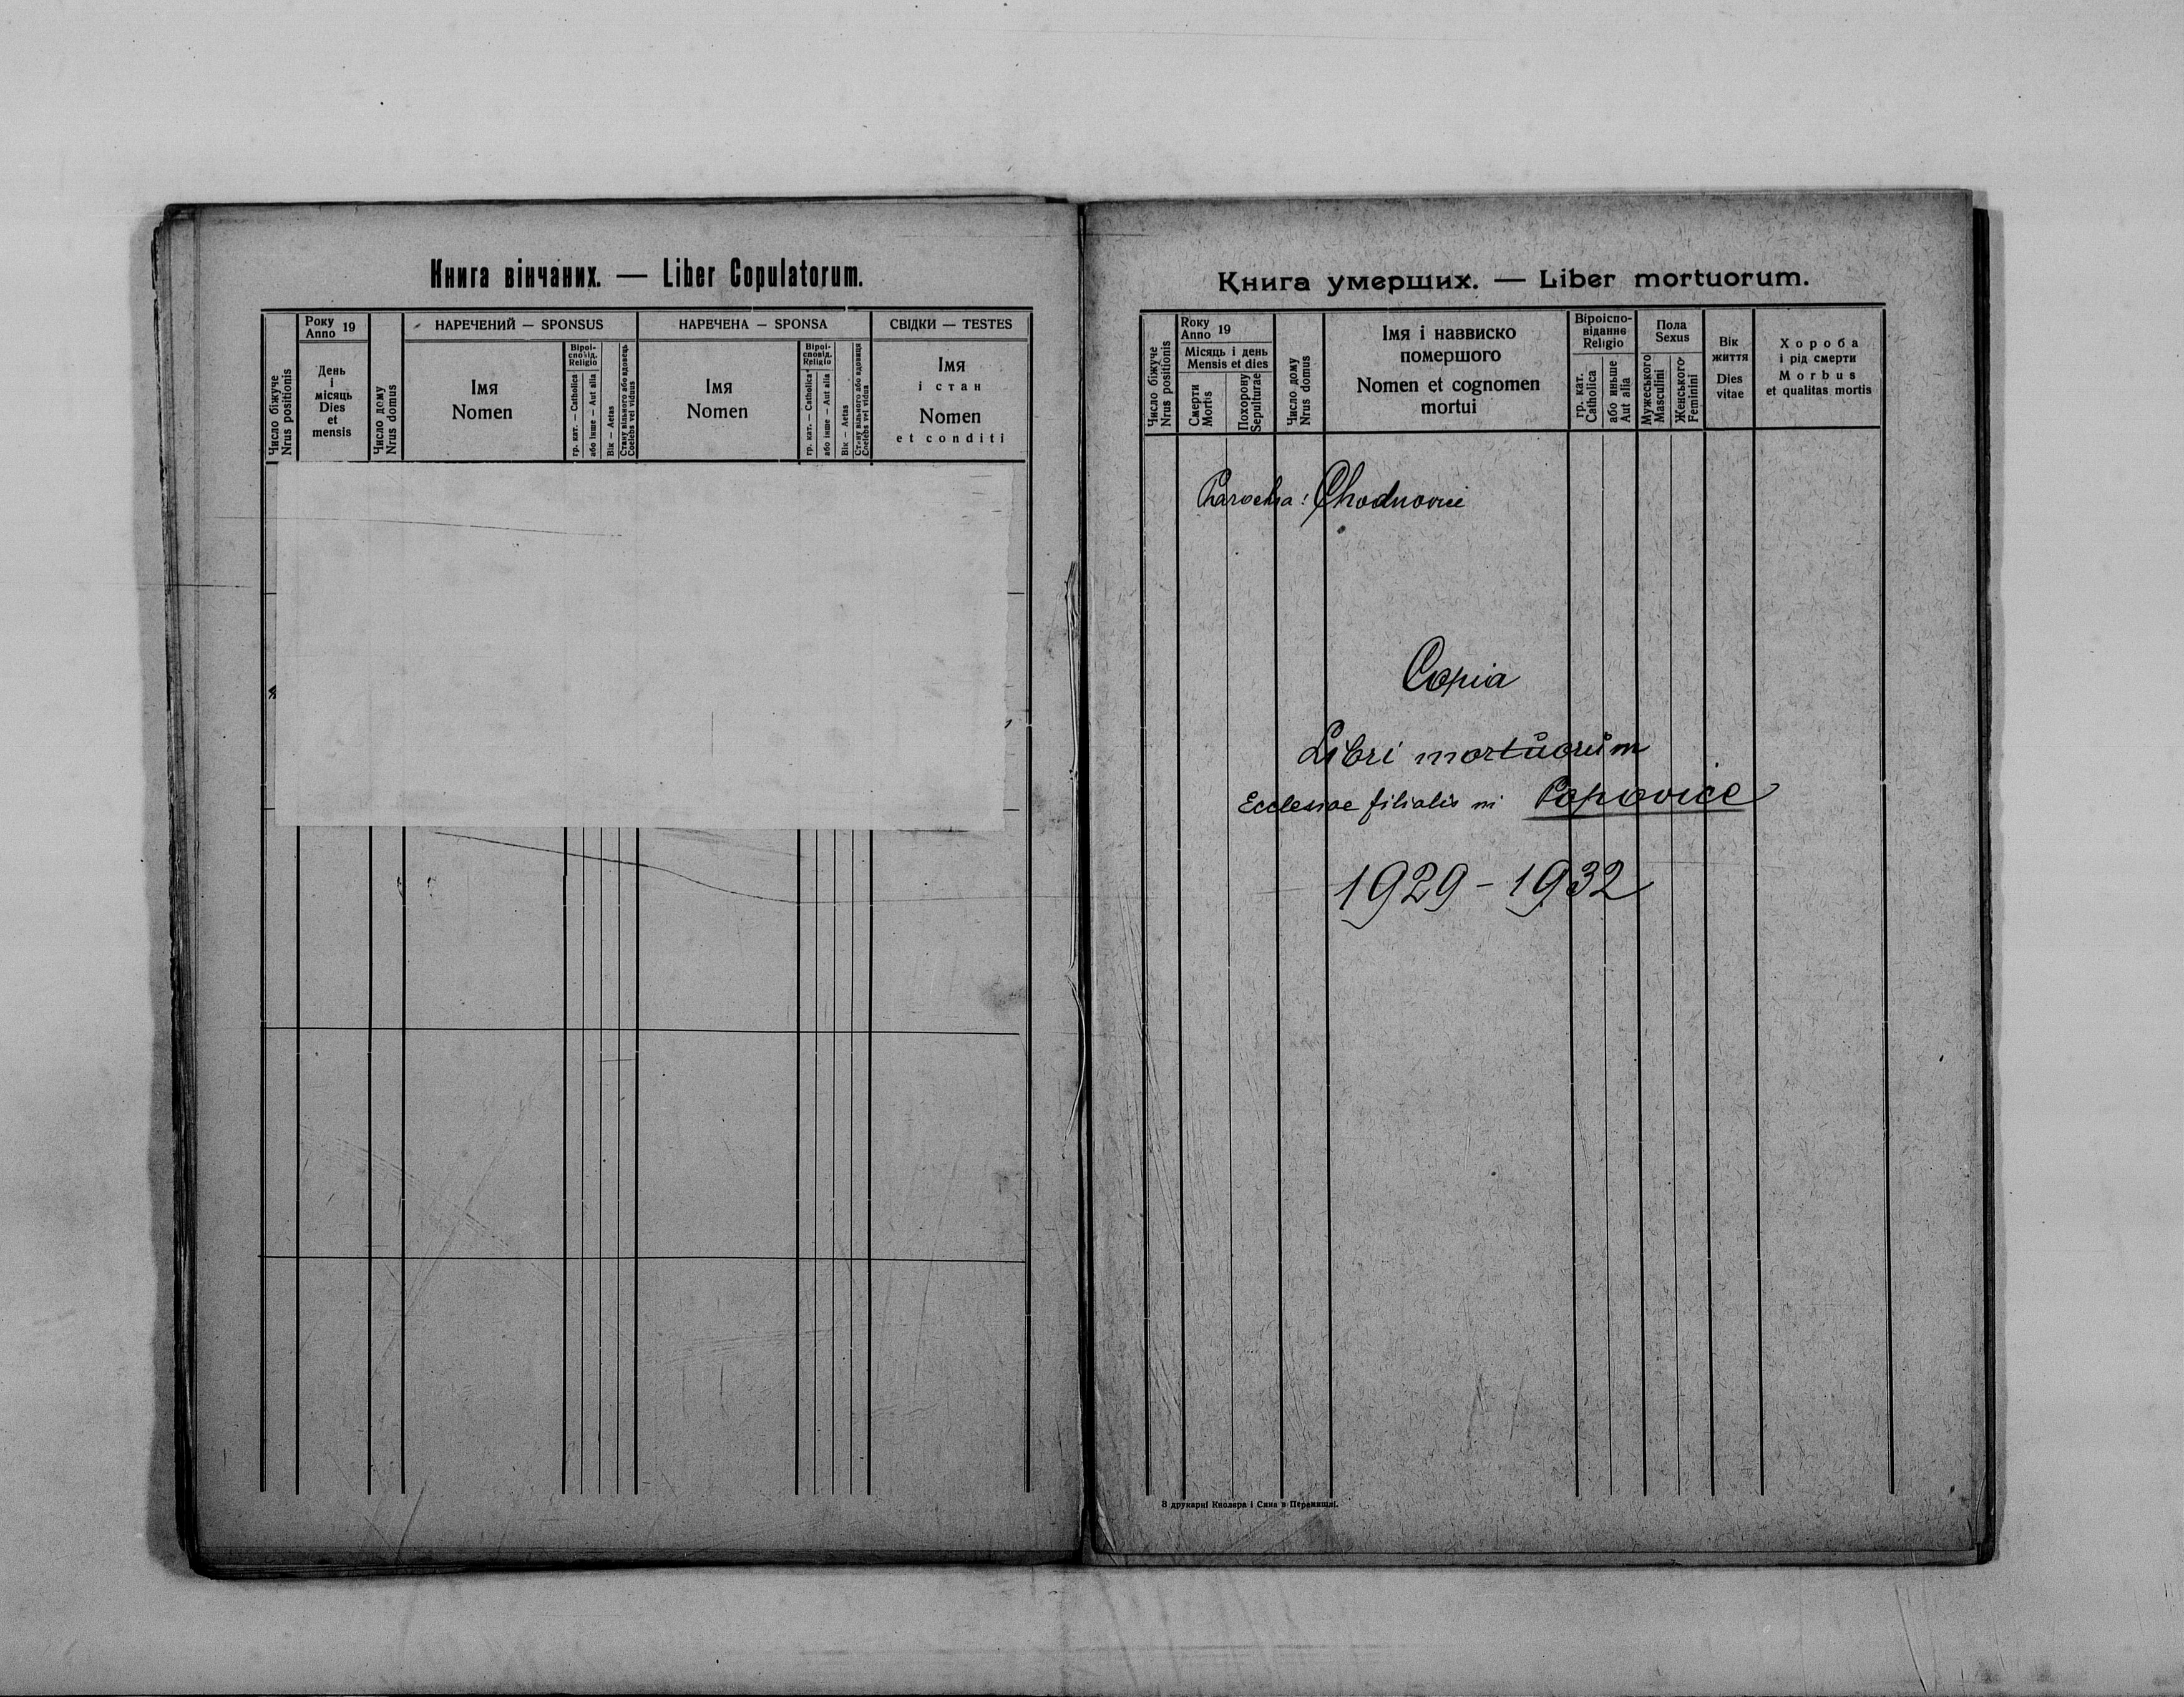 Книга вінчаних. — Liber Copulatorum.
Число біжуче
Nrus positionis
Року
Anno 19
День
і
місяць
Dies
et
mensis
Число дому
Nrus domus
НАРЕЧЕНИЙ — SPONSUS
Імя
Nomen
Віроі-
сповід.
Religio
гр. кат. — Catholica
або інше — Aut alia
Вік — Aetas
Стану вільного або вдовець
Coelebs vel viduus
НАРЕЧЕНА — SPONSA
Імя
Nomen
Віроі-
сповід.
Religio
гр. кат. — Catholica
або інше — Aut alia
Вік — Aetas
Стану вільного або вдовиця
Coelebs vel vidua
СВІДКИ — TESTES
Імя
і стан
Nomen
et conditi
Книга умерших. — Liber mortuorum.
Число біжуче
Nrus positionis
Року
Anno 19
Місяць і день
Mensis et dies
Смерти
Mortis
Похорону
Sepulturae
Число дому
Nrus domus
Імя і назвиско
помершого
Nomen et cognomen
mortui
Віроіспо-
віданнє
Religio
гр. кат.
Catholica
або иньше
Aut alia
Пола
Sexus
Мужеського
Masculini
Женського
Feminini
Вік
життя
Dies
vitae
Хороба
і рід смерти
Morbus
et qualitas mortis
Parochia: Chodnowice
Copia
Libri mortuorum
Ecclesiae filialis in Popowice
1929 - 1932
З друкарні Кнолера і Сина в Перемишлі.